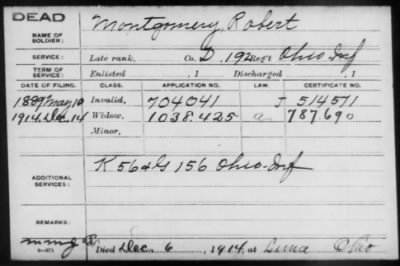 DEAD
NAME OF SOLDIER: Montgomery, Robert
SERVICE: Late rank, Co. D, 192 Reg't Ohio Inf
TERM OF SERVICE: Enlisted , 1 Discharged , 1
DATE OF FILING. CLASS. APPLICATION NO. LAW. CERTIFICATE NO.
1889 May 10 Invalid, 704041 J 514571
1914 Dec 14 Widow, 1038.425 a 787690
Minor,
ADDITIONAL SERVICES: K 56 & G 156 Ohio Inf
REMARKS:
Died Dec 6, 1914, at Lima Ohio